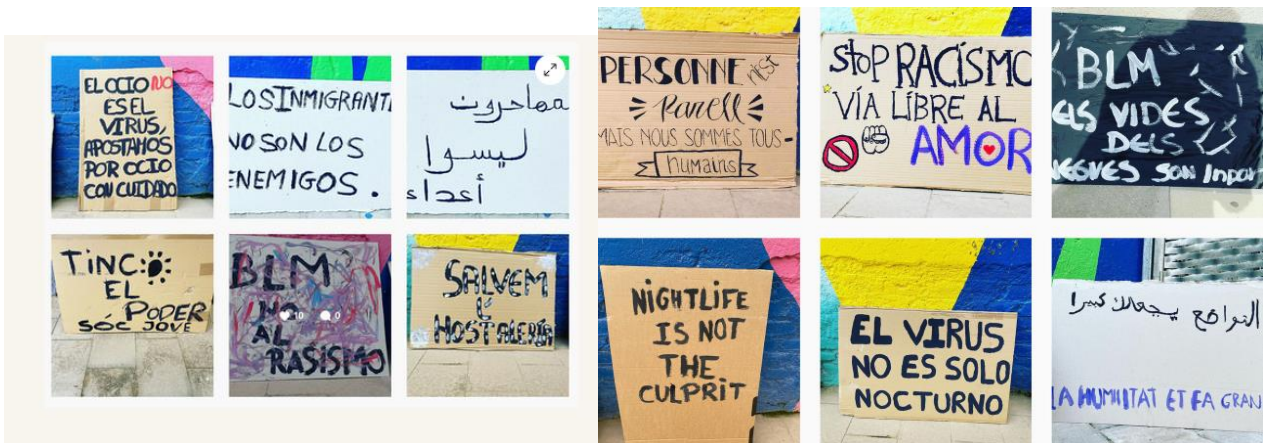 EL OCIO NO
ES EL
VIRUS,
APOSTAMOS
POR OCIO
CON CUIDADO
LOS INMIGRANT
NO SON LOS
ENEMIGOS.
مهاجرون
ليسوا
أعداء
TINC
EL
PODER
SÓC JOVE
BLM
NO
AL
RASISMO
10 0
SALVEM
L'
HOSTALERIA
PERSONNE n'est
Pareil
MAIS NOUS SOMMES TOUS
humains
Stop RACISMO
VÍA LIBRE AL
AMOR
BLM
ELS VIDES
DELS
NEGRES SON Inpor
NIGHTLIFE
IS NOT
THE
CULPRIT
EL VIRUS
NO ES SOLO
NOCTURNO
التواضع يجعلك كبيرا
LA HUMILITAT ET FA GRAN